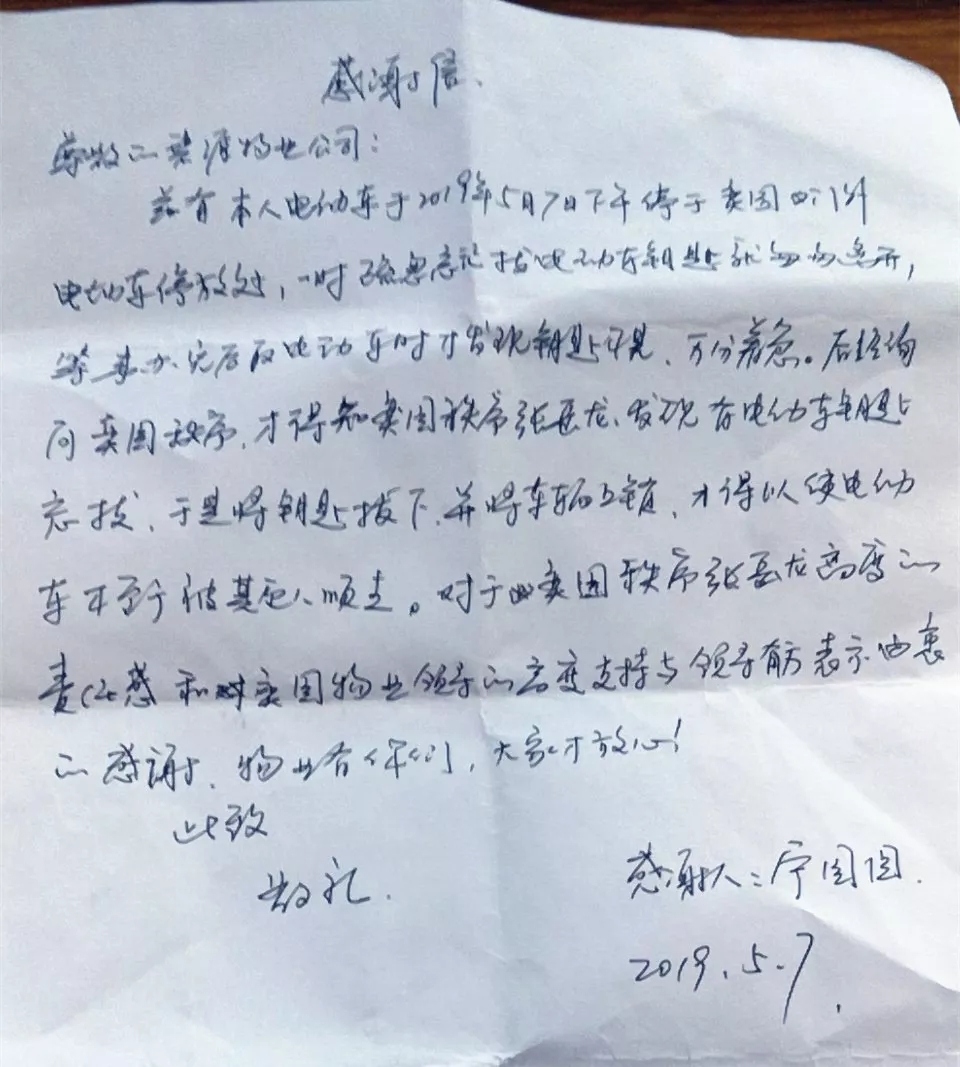 感谢信
尊敬的奕源物业公司：
兹有本人电动车于2019年5月7日下午停于奕园西门外
电动车停放处，一时疏忽忘记拔电动车钥匙就匆匆离开，
等事办完后取电动车时才发现钥匙不见，万分着急。后经询
问奕园秩序，才得知奕园秩序张亚龙发现有电动车钥匙
忘拔，于是将钥匙拔下，并将车辆上锁，才得以使电动
车不至于被其他人顺走。对于奕园秩序张亚龙高度的
责任感和对奕园物业领导的高度支持与领导有方表示由衷
的感谢，物业有你们，大家才放心！
此致
敬礼
感谢人：
2019.5.7